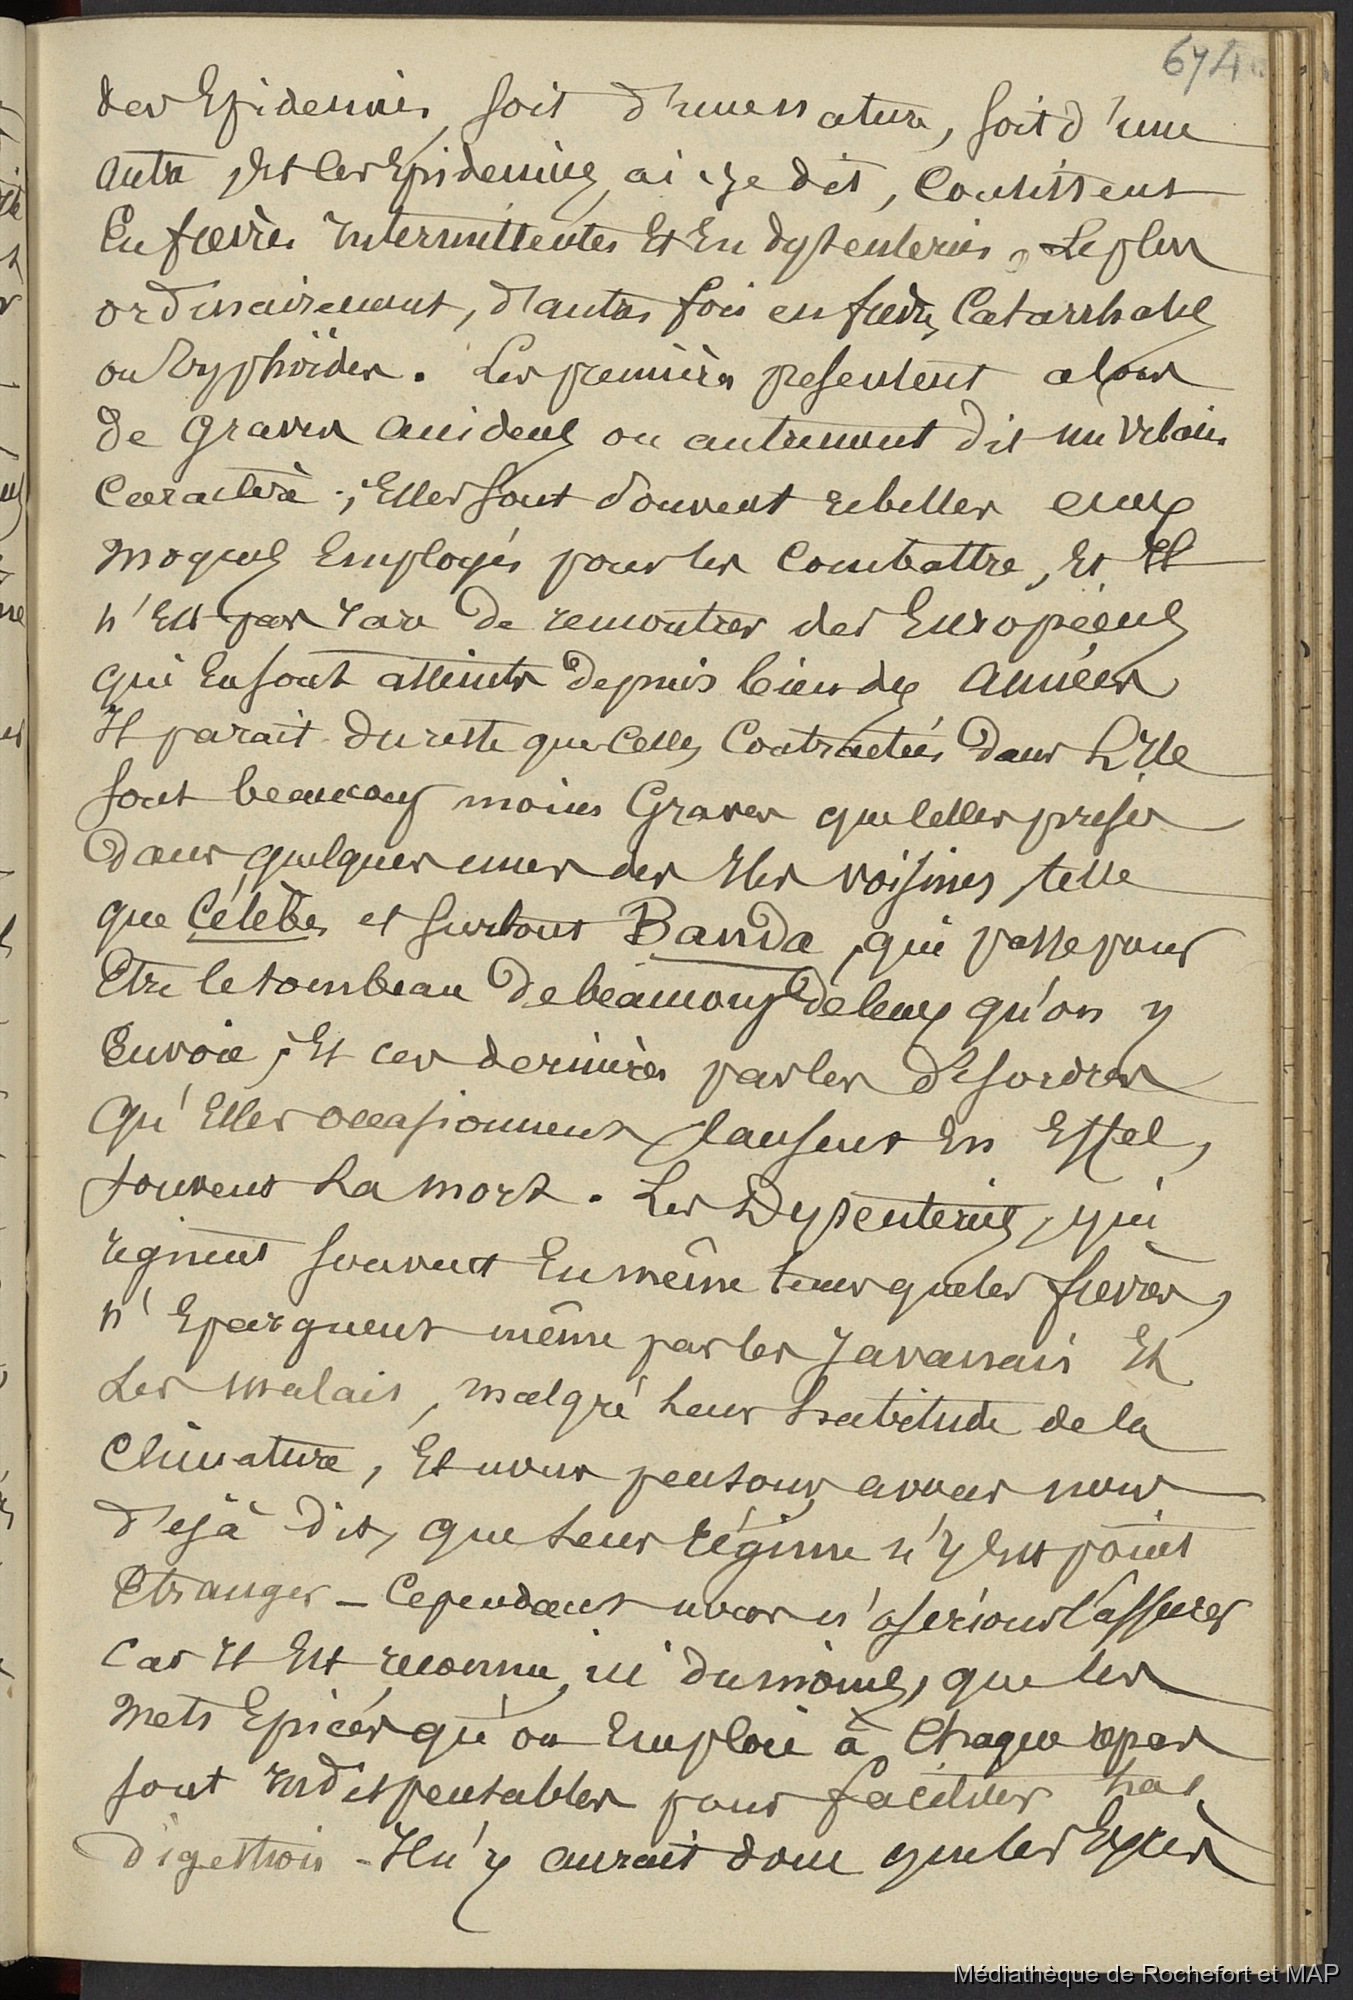 674
des Epidemies, soit d'une nature, soit d'une
autre, Et les Epidemies, ai-je dit, Consistent
En fièvres Intermittentes Et En dysenteries, Le plus
ordinairement, d'autres fois en fièvres Catarrhales
ou Typhoïdes. Les premières presentent alors
de graves accidens ou autrement dit un vilain
Caractère ; Elles sont souvent rebelles aux
moyens Employés pour les Combattre, Et Il
n'Est pas rare de remontrer des Européens
qui En sont atteints depuis bien des années
Il parait du reste que Celles Contractées dans L'Ile
sont beaucoup moins Graves que celles prises
dans quelques unes des Iles voisines, telle
que Célèbes et surtout Banda, qui passe pour
Etre le tombeau de beaucoup de ceux qu'on y
Envoie ; Et ces dernières par les désordres
qu'Elles occasionnent causent En Effet,
souvent La mort. Les Dysenteries, qui
règnent souvent En même tems que les fièvres,
n'Epargnent même pas les Javanais Et
Les malais, malgré Leur habitude de la
Climature, Et nous pensons, avons nous
déjà dit, que Leur régime n'y Est point
Etranger _ Cependant nous n'oserions l'assurer
Car Il Est reconnu, ici du moins, que les
mets Epicés qu'on Emploie à Chaque repas
sont Indispensables pour faciliter La
digestion - Il n'y aurait donc que les Excès
Médiathèque de Rochefort et MAP